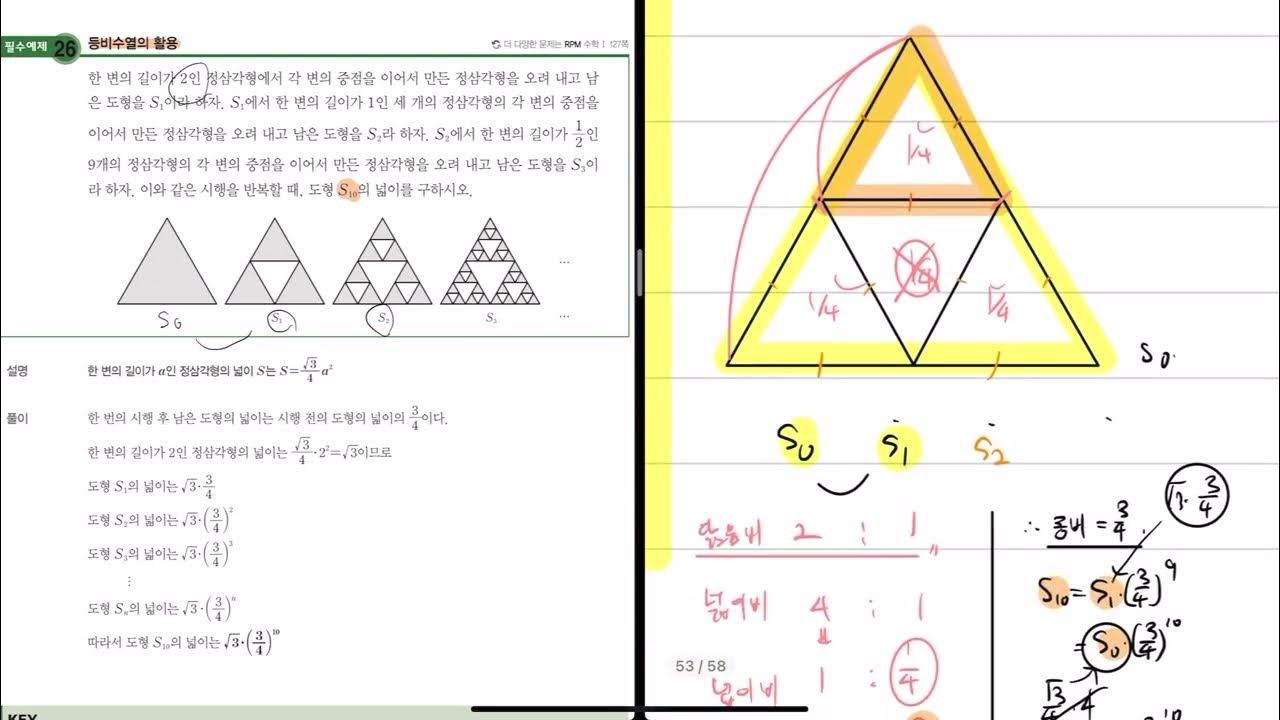 필수예제 26 등비수열의 활용
더 다양한 문제는 RPM 수학 I 127쪽
한 변의 길이가 2인 정삼각형에서 각 변의 중점을 이어서 만든 정삼각형을 오려 내고 남
은 도형을 S₁이라 하자. S₁에서 한 변의 길이가 1인 세 개의 정삼각형의 각 변의 중점을
이어서 만든 정삼각형을 오려 내고 남은 도형을 S₂라 하자. S₂에서 한 변의 길이가 1/2인
9개의 정삼각형의 각 변의 중점을 이어서 만든 정삼각형을 오려 내고 남은 도형을 S₃이
라 하자. 이와 같은 시행을 반복할 때, 도형 S₁₀의 넓이를 구하시오.
...
S₀ S₁ S₂ S₃ ...
설명 한 변의 길이가 a인 정삼각형의 넓이 S는 S=√3/4 a²
풀이 한 번의 시행 후 남은 도형의 넓이는 시행 전의 도형의 넓이의 3/4이다.
한 변의 길이가 2인 정삼각형의 넓이는 √3/4·2²=√3이므로
도형 S₁의 넓이는 √3·3/4
도형 S₂의 넓이는 √3·(3/4)²
도형 S₃의 넓이는 √3·(3/4)³
⋮
도형 Sₙの 넓이는 √3·(3/4)ⁿ
따라서 도형 S₁₀의 넓이는 √3·(3/4)¹⁰
KEY
1/4
1/4 1/4 1/4
S₀.
S₀ S₁ S₂
닮음비 2 : 1
넓이비 4 : 1
넓이비 1 : 1/4
53 / 58
√3·3/4
∴ 공비 = 3/4
S₁₀ = S₁·(3/4)⁹
= S₀·(3/4)¹⁰
√3/4·4